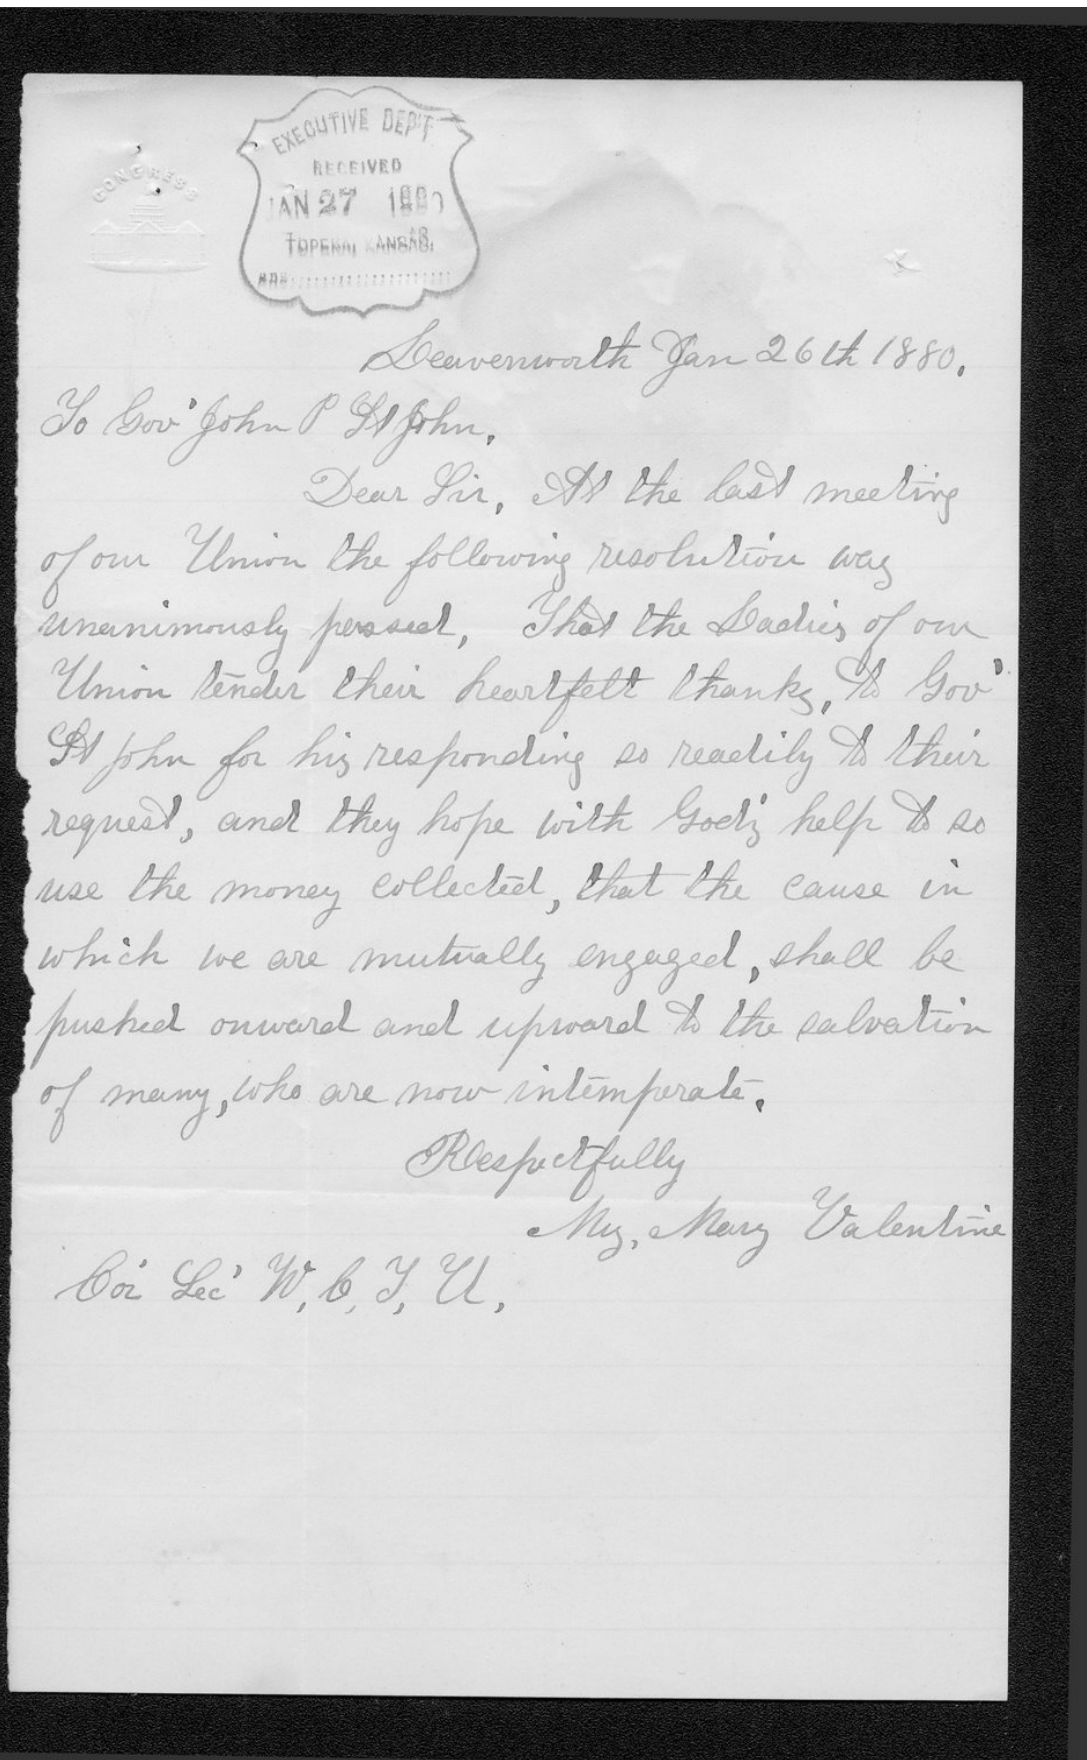 CONGRESS
EXECUTIVE DEP'T
RECEIVED
JAN 27 1880
TOPEKA, KANSAS.
Leavenworth Jan 26th 1880.
To Gov' John P St John,
Dear Sir, At the last meeting
of our Union the following resolution was
unanimously passed, That the Ladies of our
Union tender their heartfelt thanks, to Gov'
St John for his responding so readily to their
request, and they hope with God's help to so
use the money collected, that the cause in
which we are mutually engaged, shall be
pushed onward and upward to the salvation
of many, who are now intemperate.
Respectfully
Mrs, Mary Valentine
Cor' Sec' W, C, T, U,